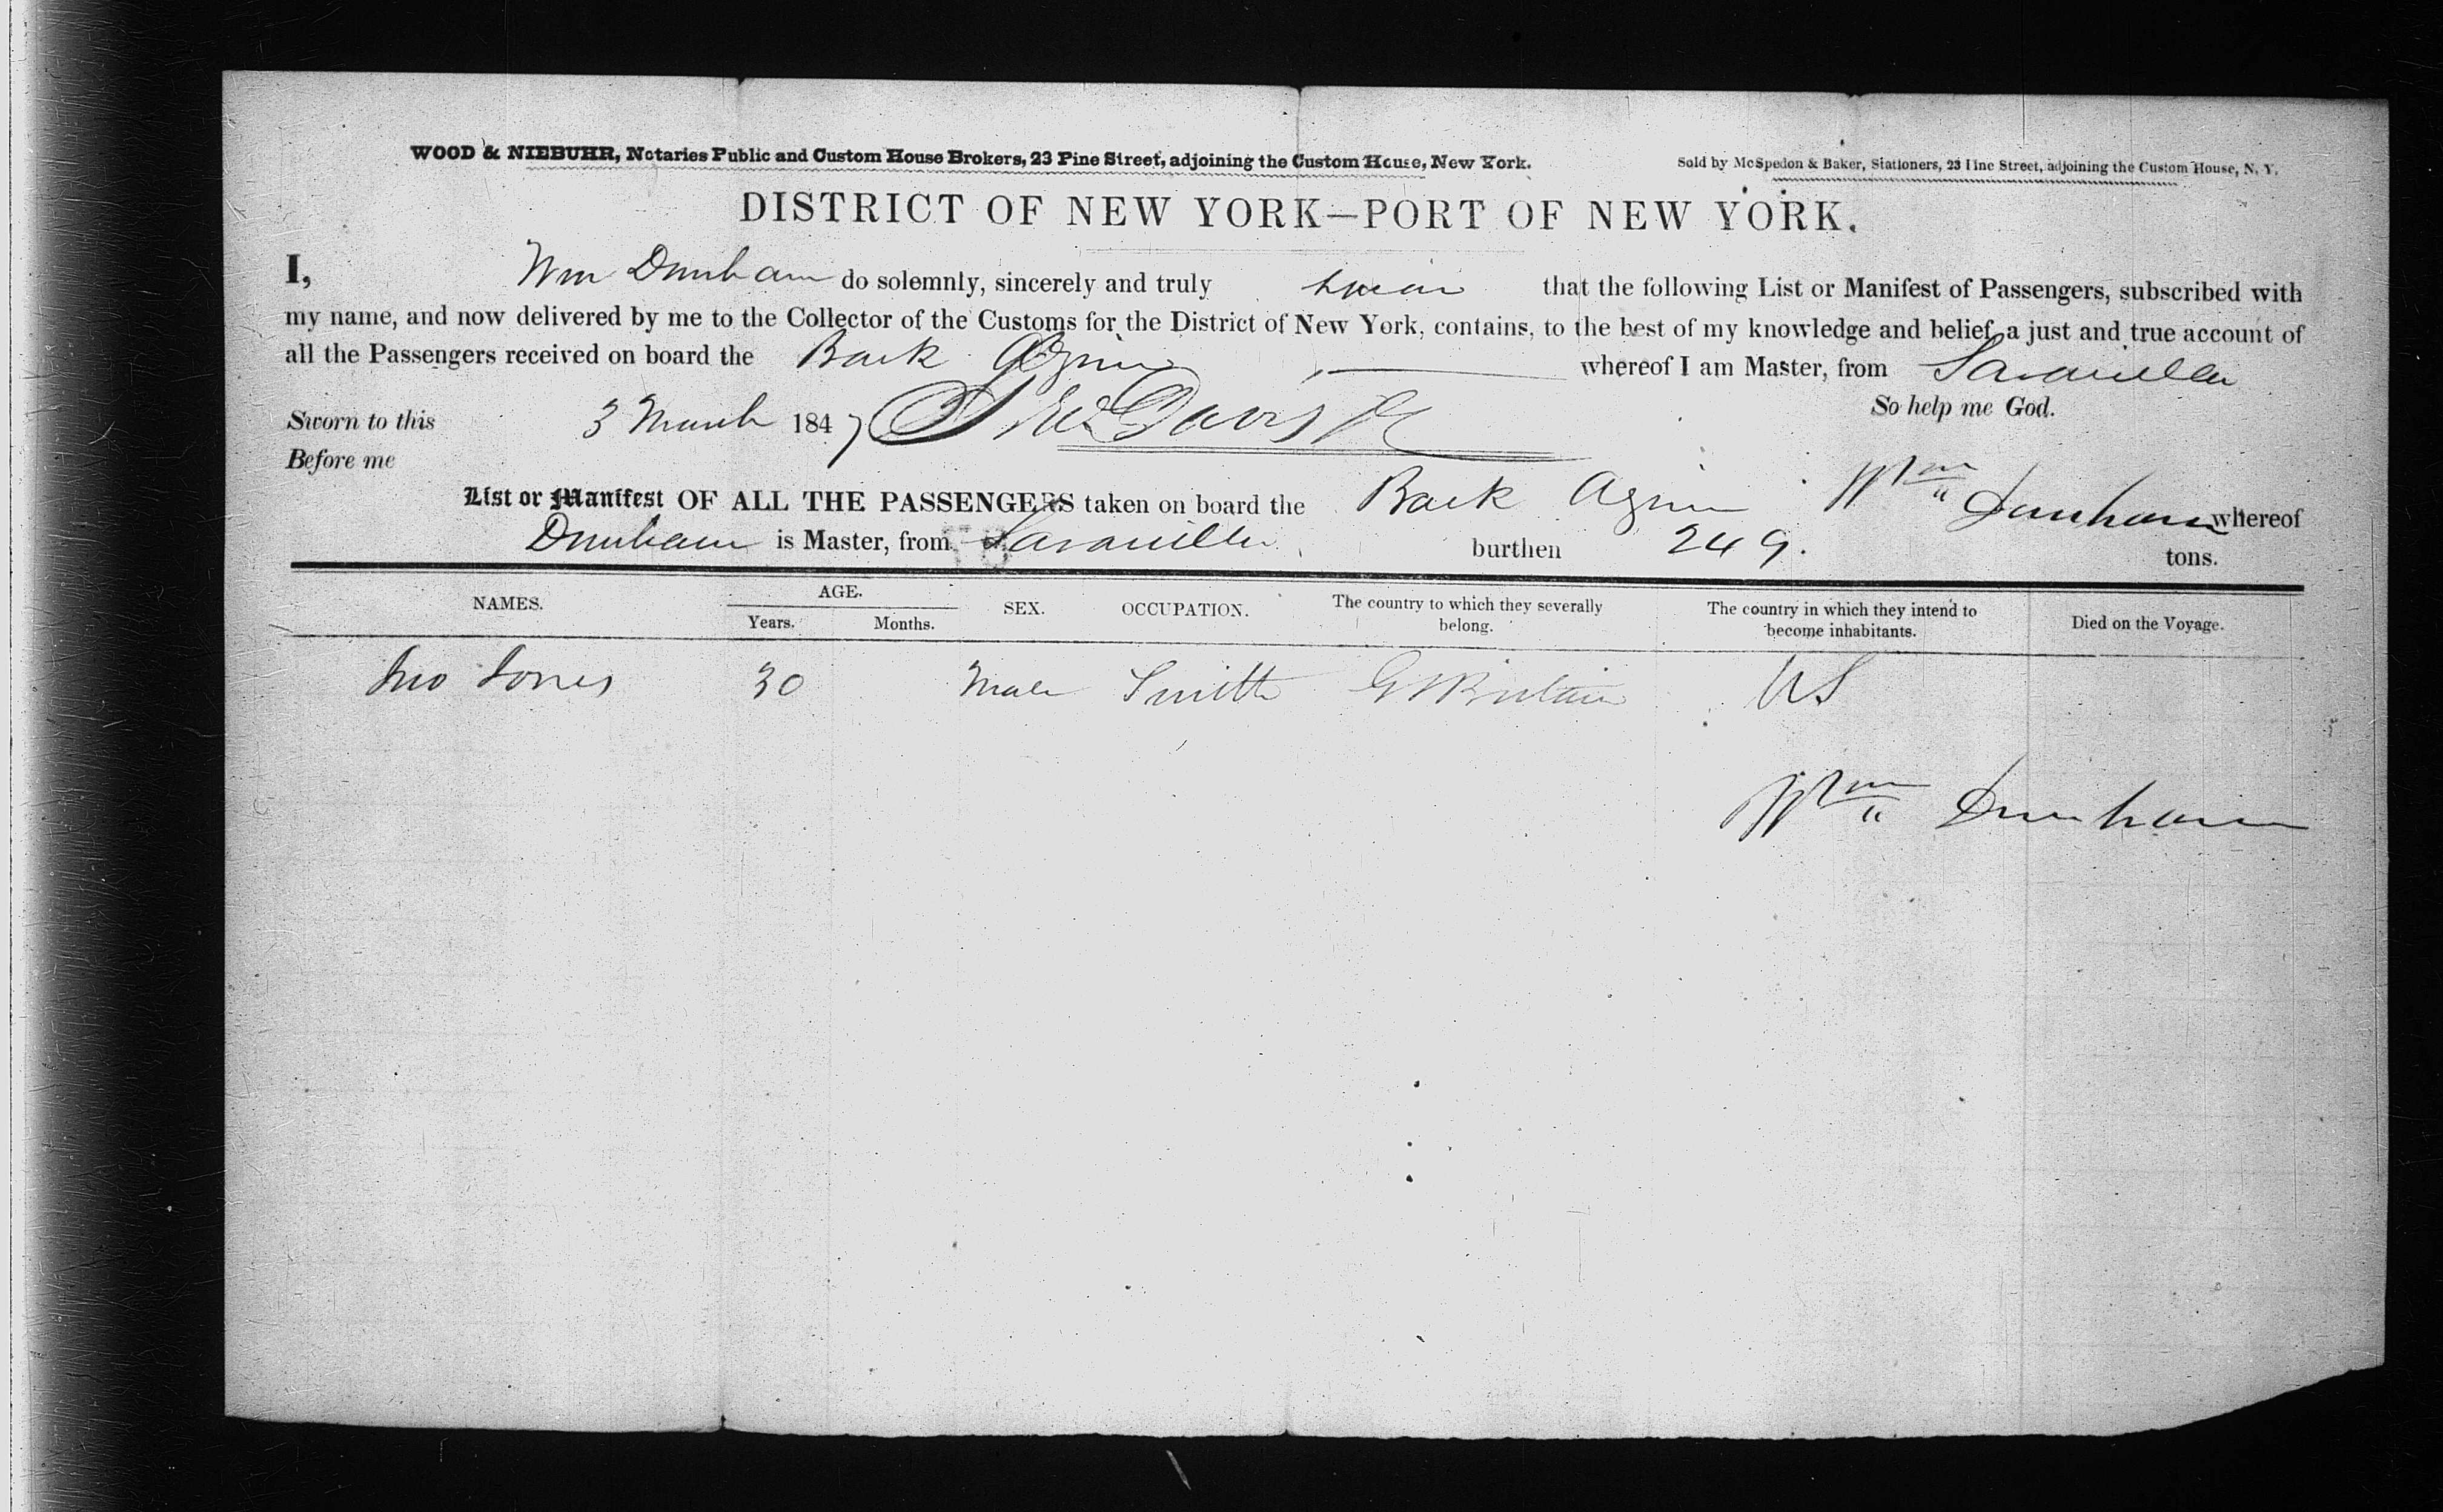 WOOD & NIEBUHR, Notaries Public and Custom House Brokers, 23 Pine Street, adjoining the Custom House, New York.
Sold by McSpedon & Baker, Stationers, 23 Pine Street, adjoining the Custom House, N. Y.
DISTRICT OF NEW YORK—PORT OF NEW YORK.
I, Wm Dunham do solemnly, sincerely and truly swear that the following List or Manifest of Passengers, subscribed with
my name, and now delivered by me to the Collector of the Customs for the District of New York, contains, to the best of my knowledge and belief, a just and true account of
all the Passengers received on board the Bark whereof I am Master, from Savanilla
So help me God.
Sworn to this 3 March 1847
Before me
Wm Dunham
List or Manifest OF ALL THE PASSENGERS taken on board the Bark whereof
Dunham is Master, from Savanilla burthen 249. tons.
NAMES. AGE. SEX. OCCUPATION. The country to which they severally belong. The country in which they intend to become inhabitants. Died on the Voyage.
Years. Months.
Jno Jones 30 Male Smith Gt Britain US
Wm Dunham